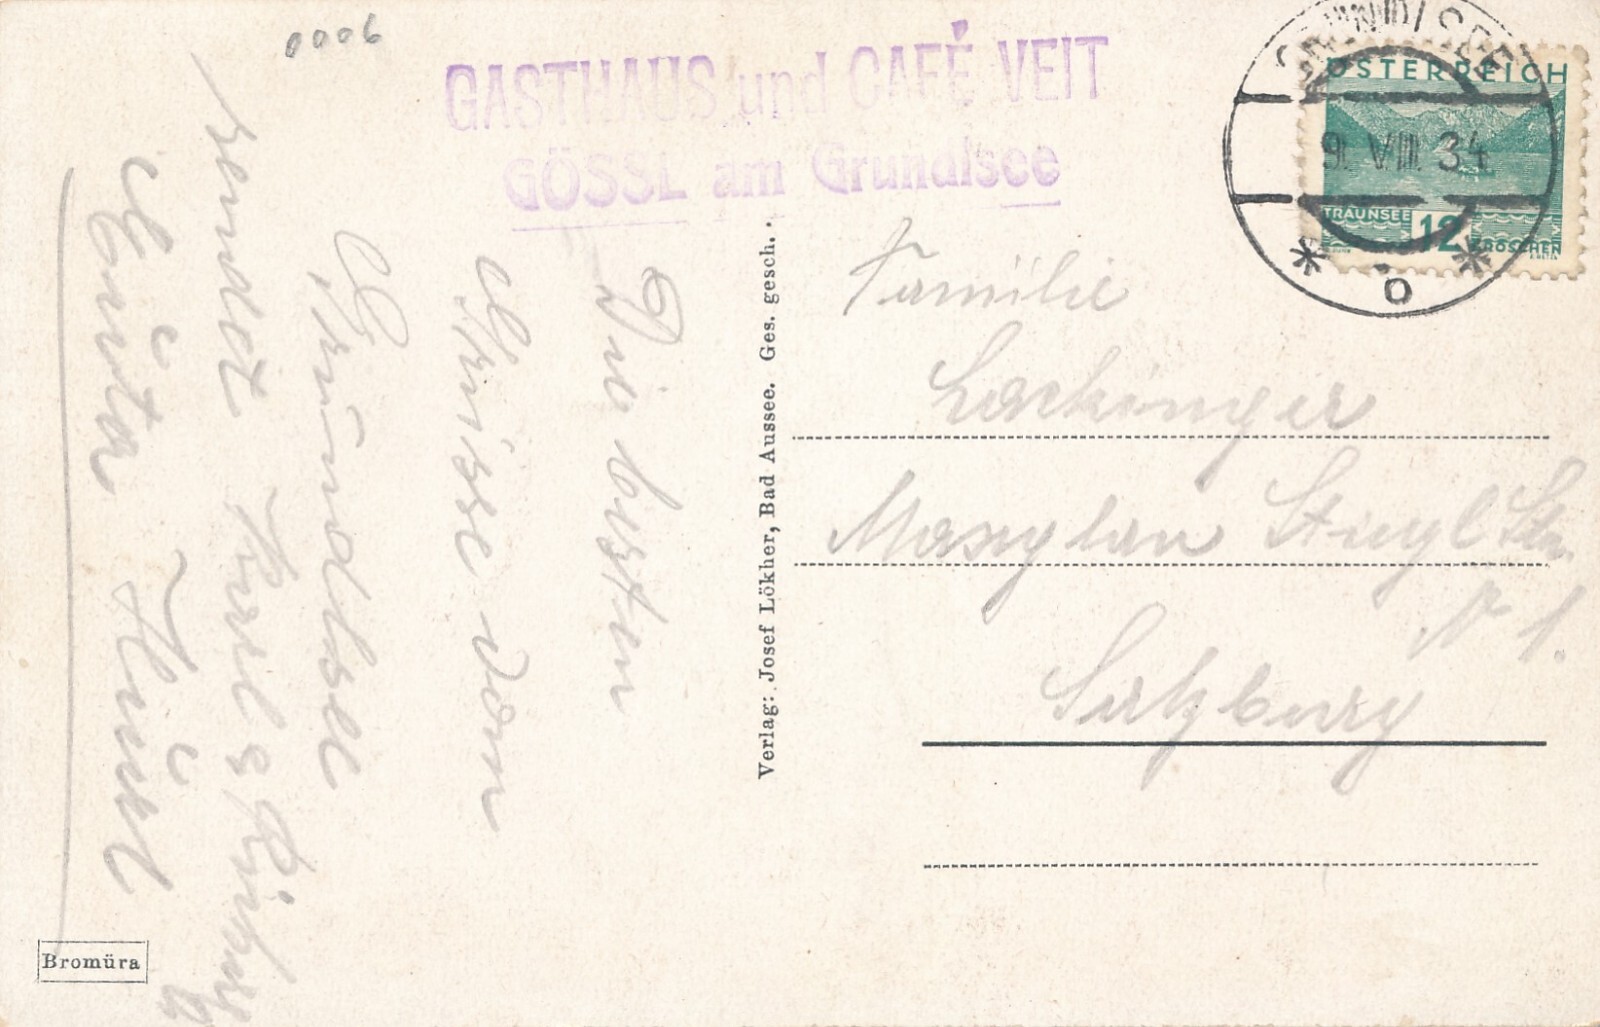 0006
GASTHAUS und CAFÉ VEIT
GÖSSL am Grundlsee
GRUNDLSEE
9. VIII. 34
* b *
ÖSTERREICH
TRAUNSEE
12 GROSCHEN
Die besten
Grüsse vom
Grundlsee
sendet Karl &
Verlag: Josef Lökher, Bad Aussee. Ges. gesch.
Familie
Lackinger
Maxglan Stiegl Str.
Nr 1.
Salzburg
Bromüra